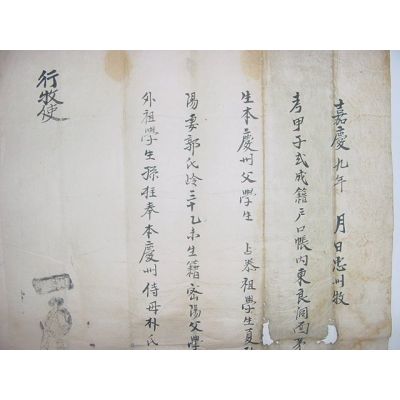 嘉慶九年 月 日忠州牧
考甲子式成籍戶口帳內東良洞面第
生本慶州父學生 占泰祖學生夏
陽妻郭氏齡三十乙未生籍密陽父學
外祖學生孫 奉本慶州侍母朴氏
行牧使